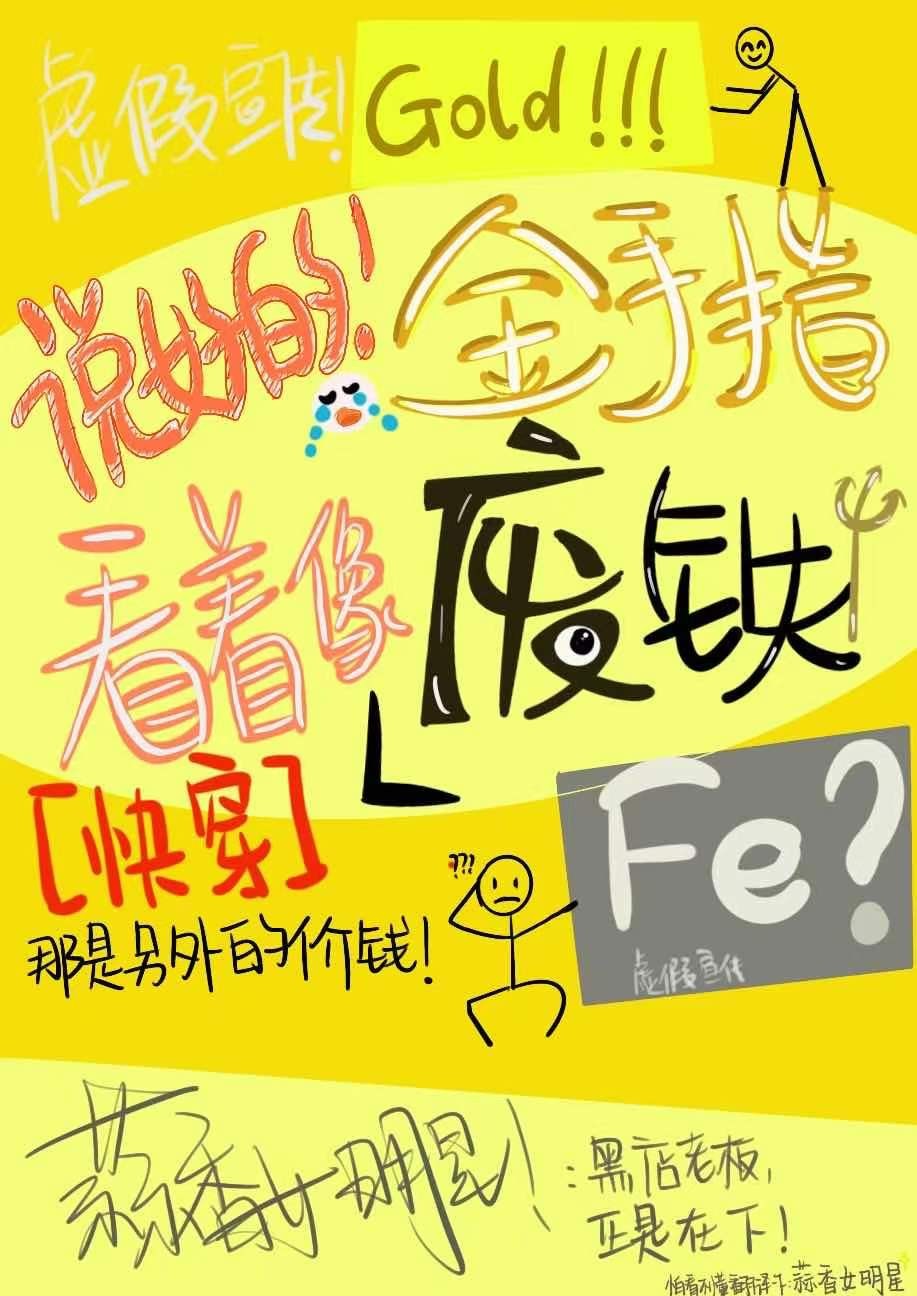 虚假宣传!
Gold!!!
说好的!
金手指
看着像
废铁
[快穿]
???
Fe?
那是另外的价钱!
虚假宣传
蒜香女明星!
:黑店老板,
正是在下!
怕看不懂翻译下:蒜香女明星